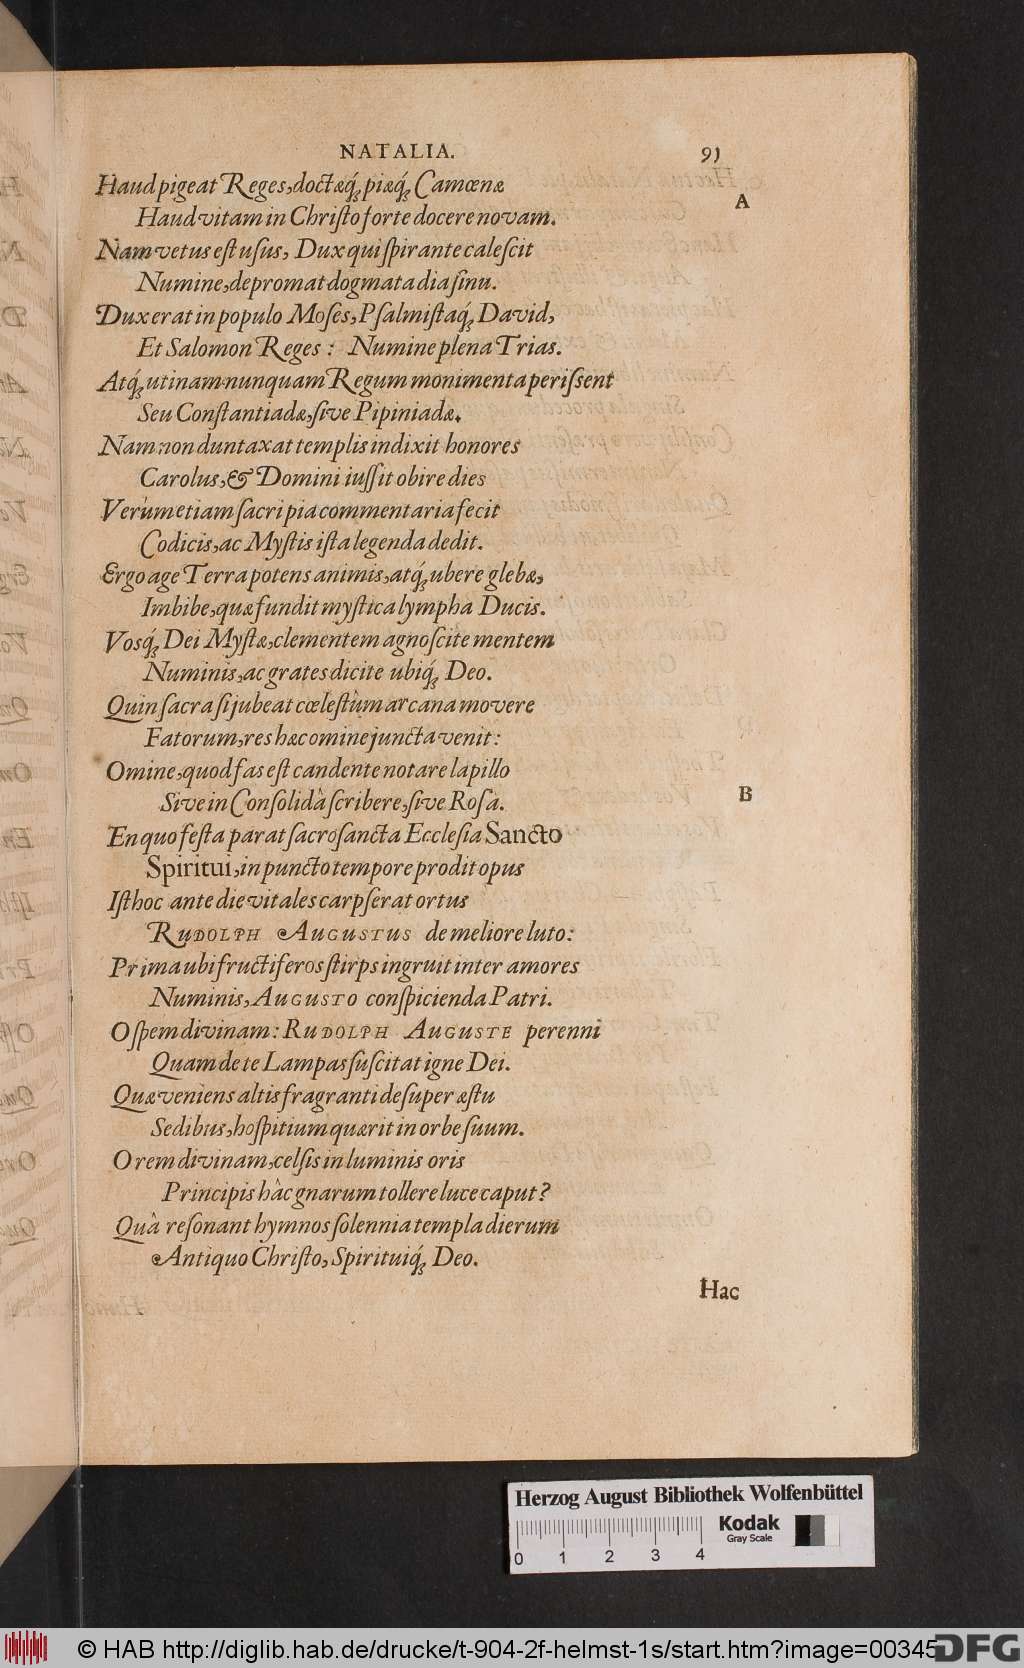 NATALIA. 91
Haud pigeat Reges, doctæq́; piæq́; Camœnæ
A
Haud vitam in Christo forte docere novam.
Nam vetus est usus, Dux qui spirante calescit
Numine, depromat dogmata dia sinu.
Dux erat in populo Moses, Psalmistaq́; David,
Et Salomon Reges: Numine plena Trias.
Atq́; utinam nunquam Regum monimenta perissent
Seu Constantiadæ, sive Pipiniadæ.
Nam non duntaxat templis indixit honores
Carolus, & Domini iussit obire dies
Verùm etiam sacri pia commentaria fecit
Codicis, ac Mystis ista legenda dedit.
Ergo age Terra potens animis, atq́; ubere glebæ,
Imbibe, quæ fundit mystica lympha Ducis.
Vosq́; Dei Mystæ, clementem agnoscite mentem
Numinis, ac grates dicite ubiq́; Deo.
Quin sacra si jubeat cœlestùm arcana movere
Fatorum, res hæc omine juncta venit:
Omine, quod fas est candente notare lapillo
Sive in Consolidà scribere, sive Rosà.
B
En quo festa parat sacrosancta Ecclesia Sancto
Spiritui, in puncto tempore prodit opus
Isthoc ante die vitales carpserat ortus
RUDOLPH AUGUSTUS de meliore luto:
Prima ubi fructiferos stirps ingruit inter amores
Numinis, AUGUSTO conspicienda Patri.
O spem divinam: RUDOLPH AUGUSTE perenni
Quam de te Lampas suscitat igne Dei.
Quæ veniens altis fragranti desuper æstu
Sedibus, hospitium quærit in orbe suum.
O rem divinam, celsis in luminis oris
Principis hàc gnarum tollere luce caput?
Quà resonant hymnos solennia templa dierum
Antiquo Christo, Spirituiq́; Deo.
Hac
Herzog August Bibliothek Wolfenbüttel
Kodak
Gray Scale
0 1 2 3 4
© HAB http://diglib.hab.de/drucke/t-904-2f-helmst-1s/start.htm?image=00345
DFG